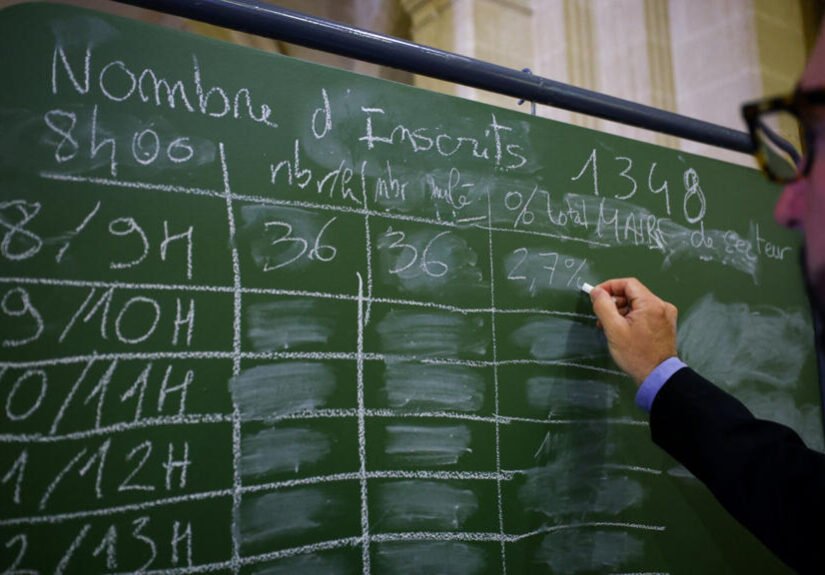 Nombre d'Inscrits 1348
8h00 nbr/h nbr % total MAIRE de secteur
8/9H 36 36 2,7%
9/10H
0/11H
1/12H
2/13H